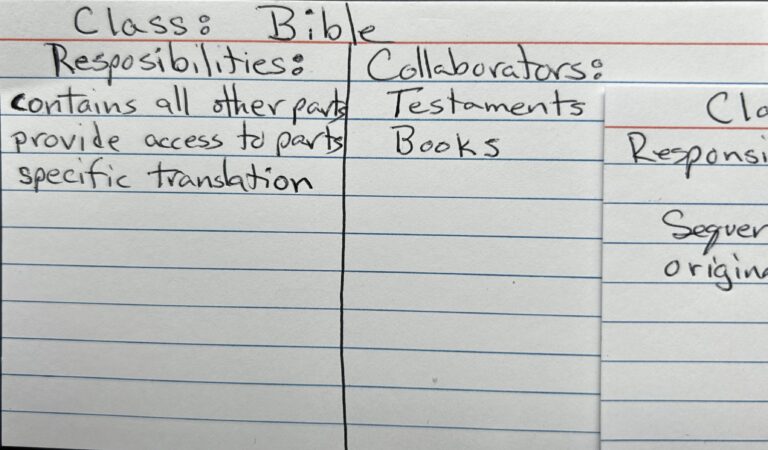 Class: Bible
Resposibilities:
contains all other parts
provide access to parts
specific translation
Collaborators:
Testaments
Books